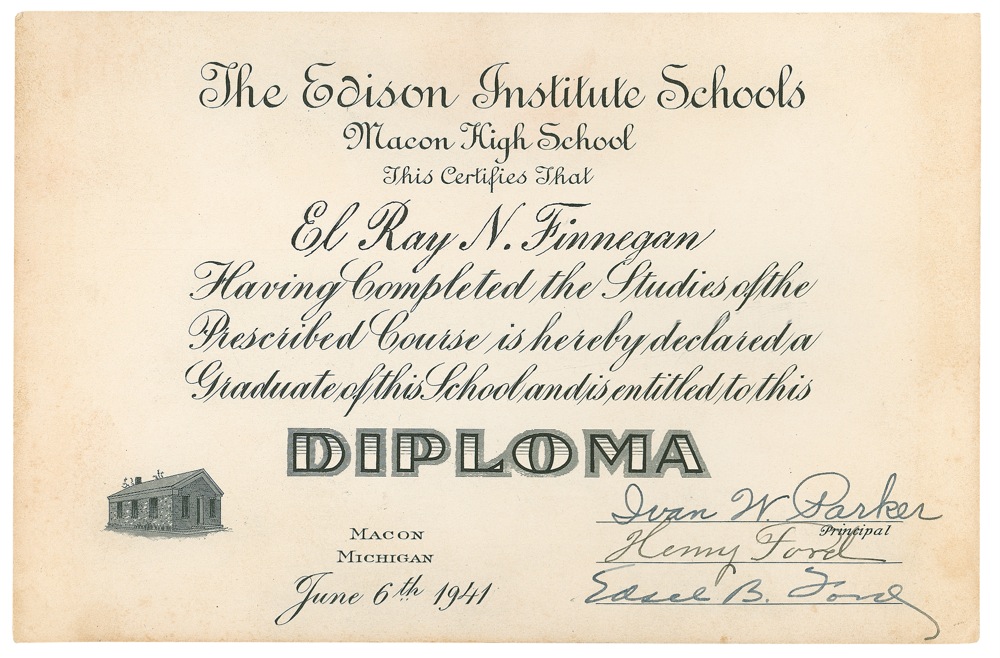 The Edison Institute Schools
Macon High School
This Certifies That
El Ray N. Finnegan
Having Completed the Studies of the
Prescribed Course is hereby declared a
Graduate of this School and is entitled to this
DIPLOMA
Ivan W. Parker
Principal
Henry Ford
Edsel B. Ford
Macon
Michigan
June 6th 1941